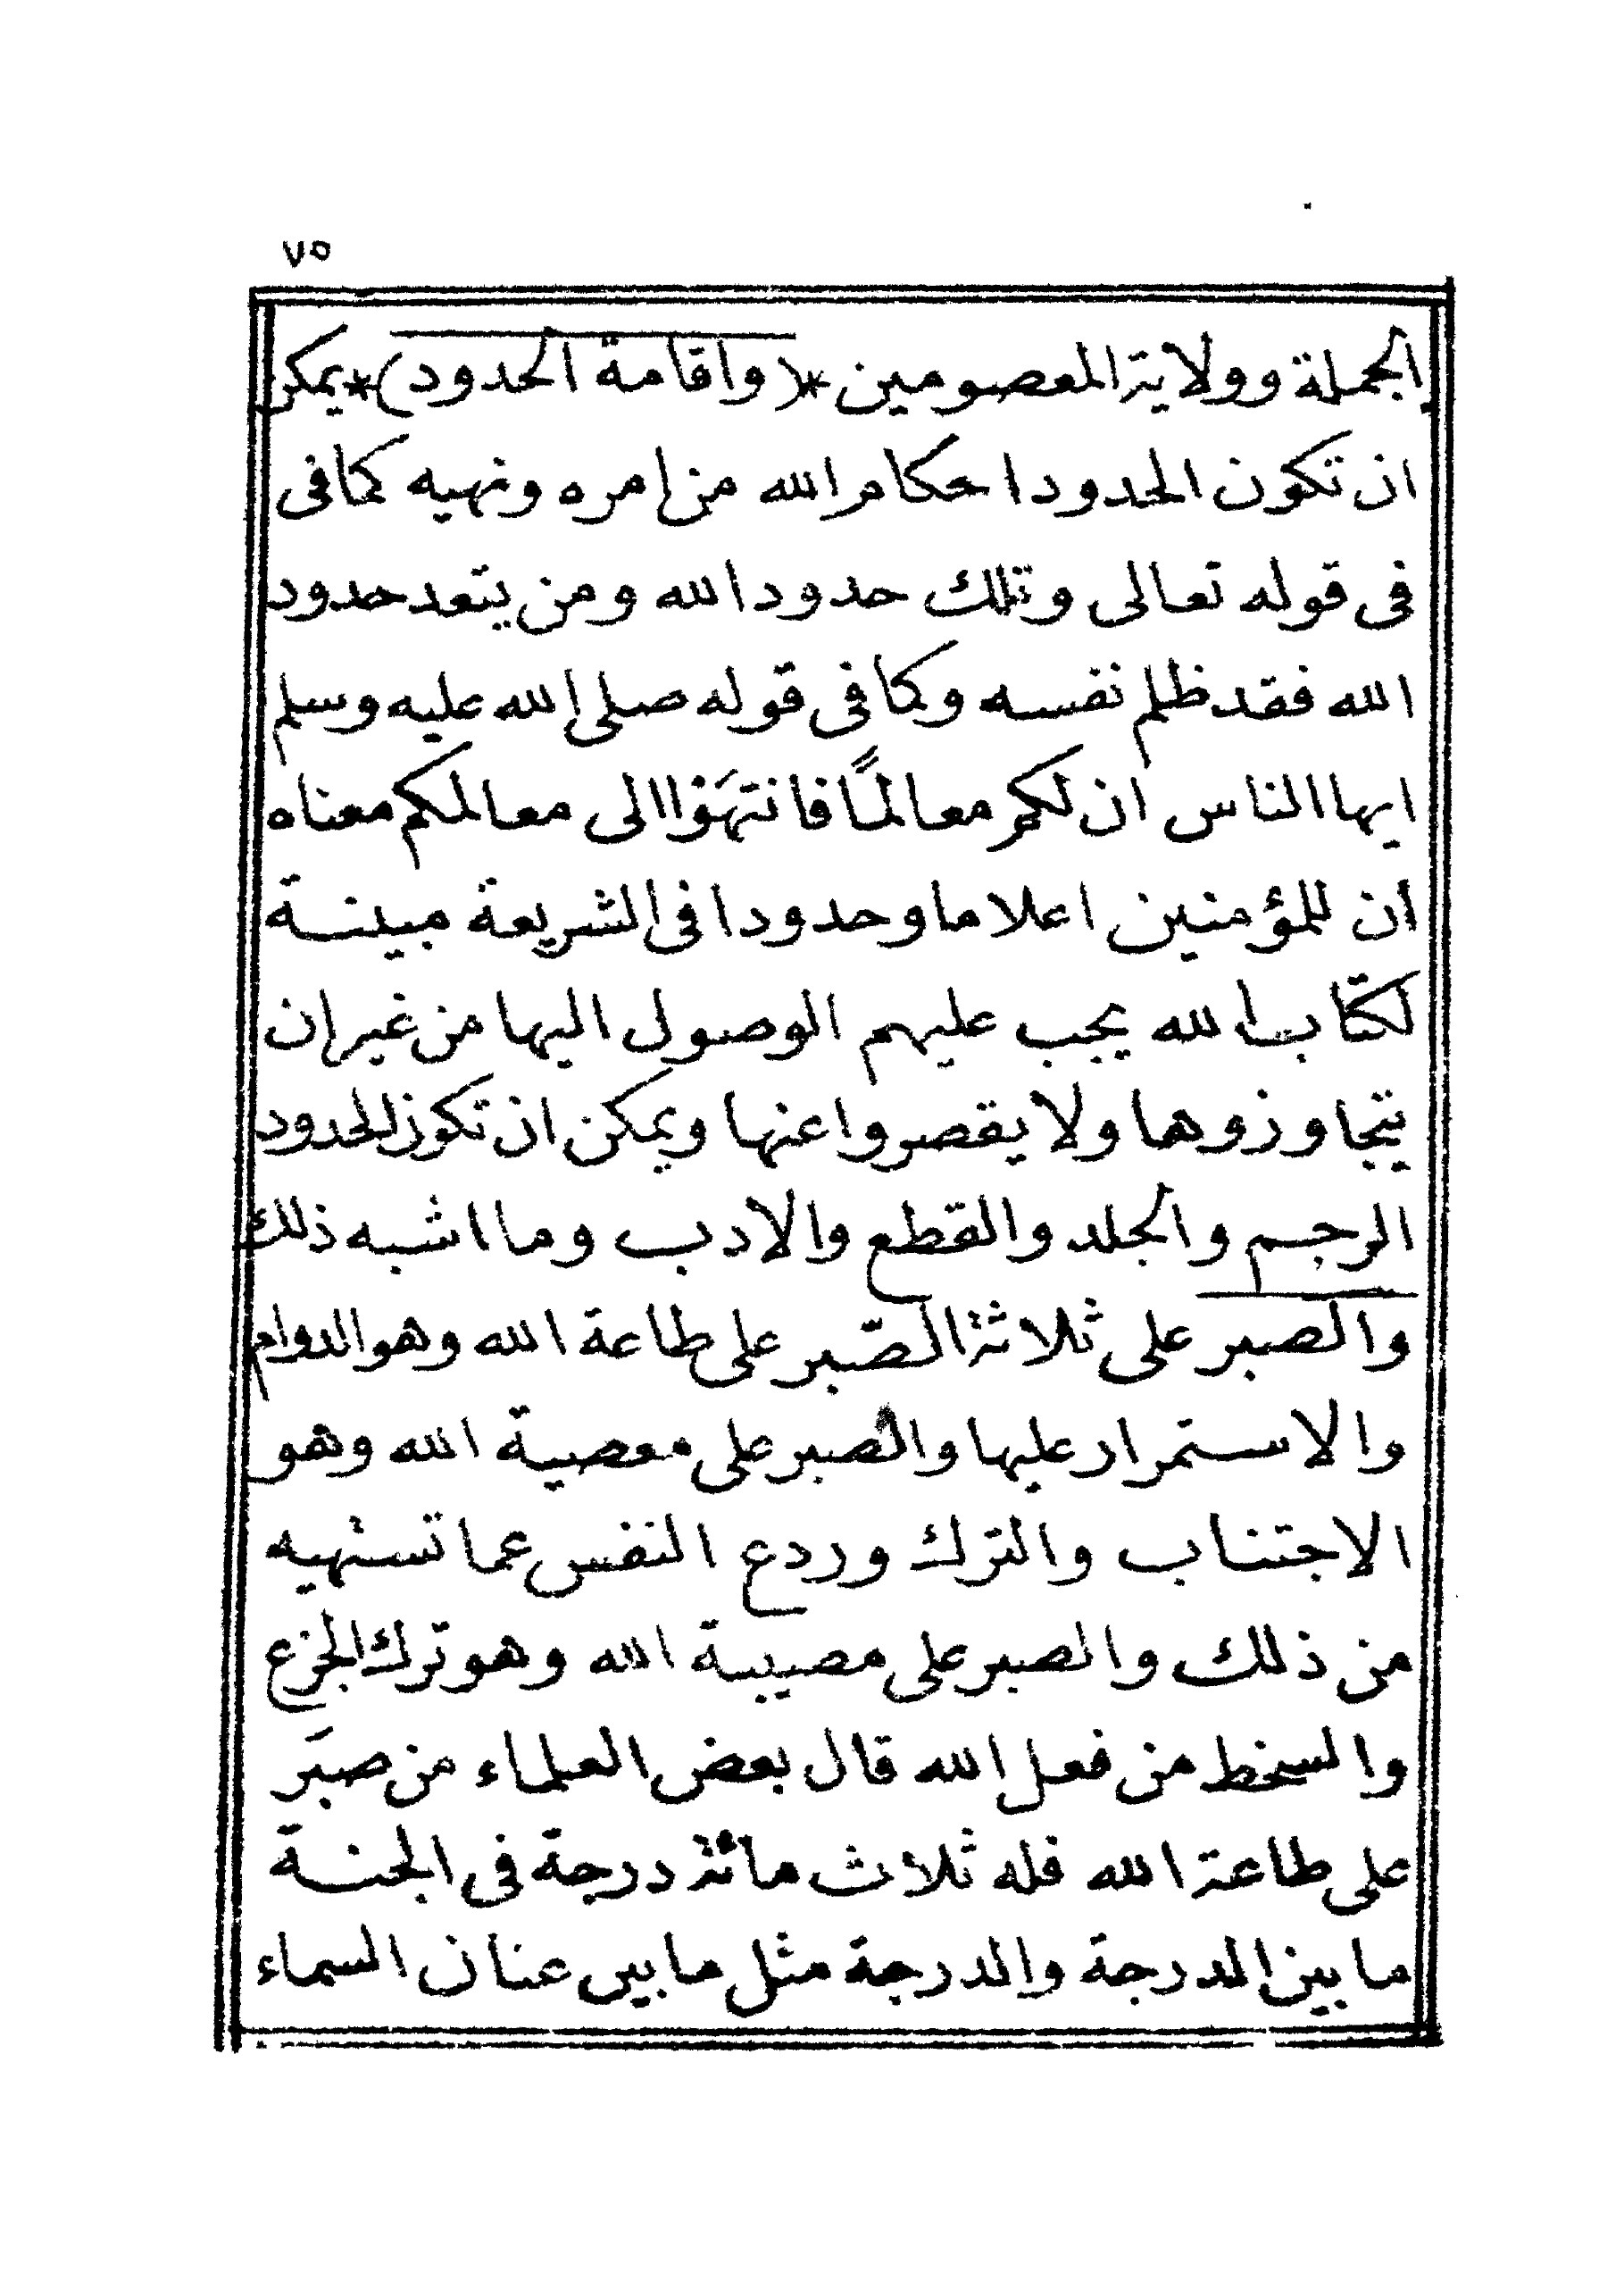 ٧٥
الجملة وولاية المعصومين *(واقامة الحدود)* يمكن
ان تكون الحدود احكام الله من امره ونهيه كما فى
فى قوله تعالى وتلك حدود الله ومن يتعد حدود
الله فقد ظلم نفسه وكما فى قوله صلى الله عليه وسلم
ايها الناس ان لكم معالمًا فانتهَوْا الى معالمكم معناه
أن للمؤمنين اعلاما وحدودا فى الشريعة مبينة
لكتاب الله يجب عليهم الوصول اليها من غير ان
يتجاوزوها ولا يقصروا عنها ويمكن ان تكون الحدود
الرجم والجلد والقطع والادب وما اشبه ذلك
والصبر على ثلاثة الصّبر على طاعة الله وهو الدوام
والاستمرار عليها والصبر على معصية الله وهو
الاجتناب والترك وردع النفس عما تستهيه
من ذلك والصبر على مصيبة الله وهو ترك الجزع
والسخط من فعل الله قال بعض العلماء من صبَر
على طاعة الله فله ثلاث مائة درجة فى الجنة
ما بين الدرجة والدرجة مثل ما بين عنان السماء